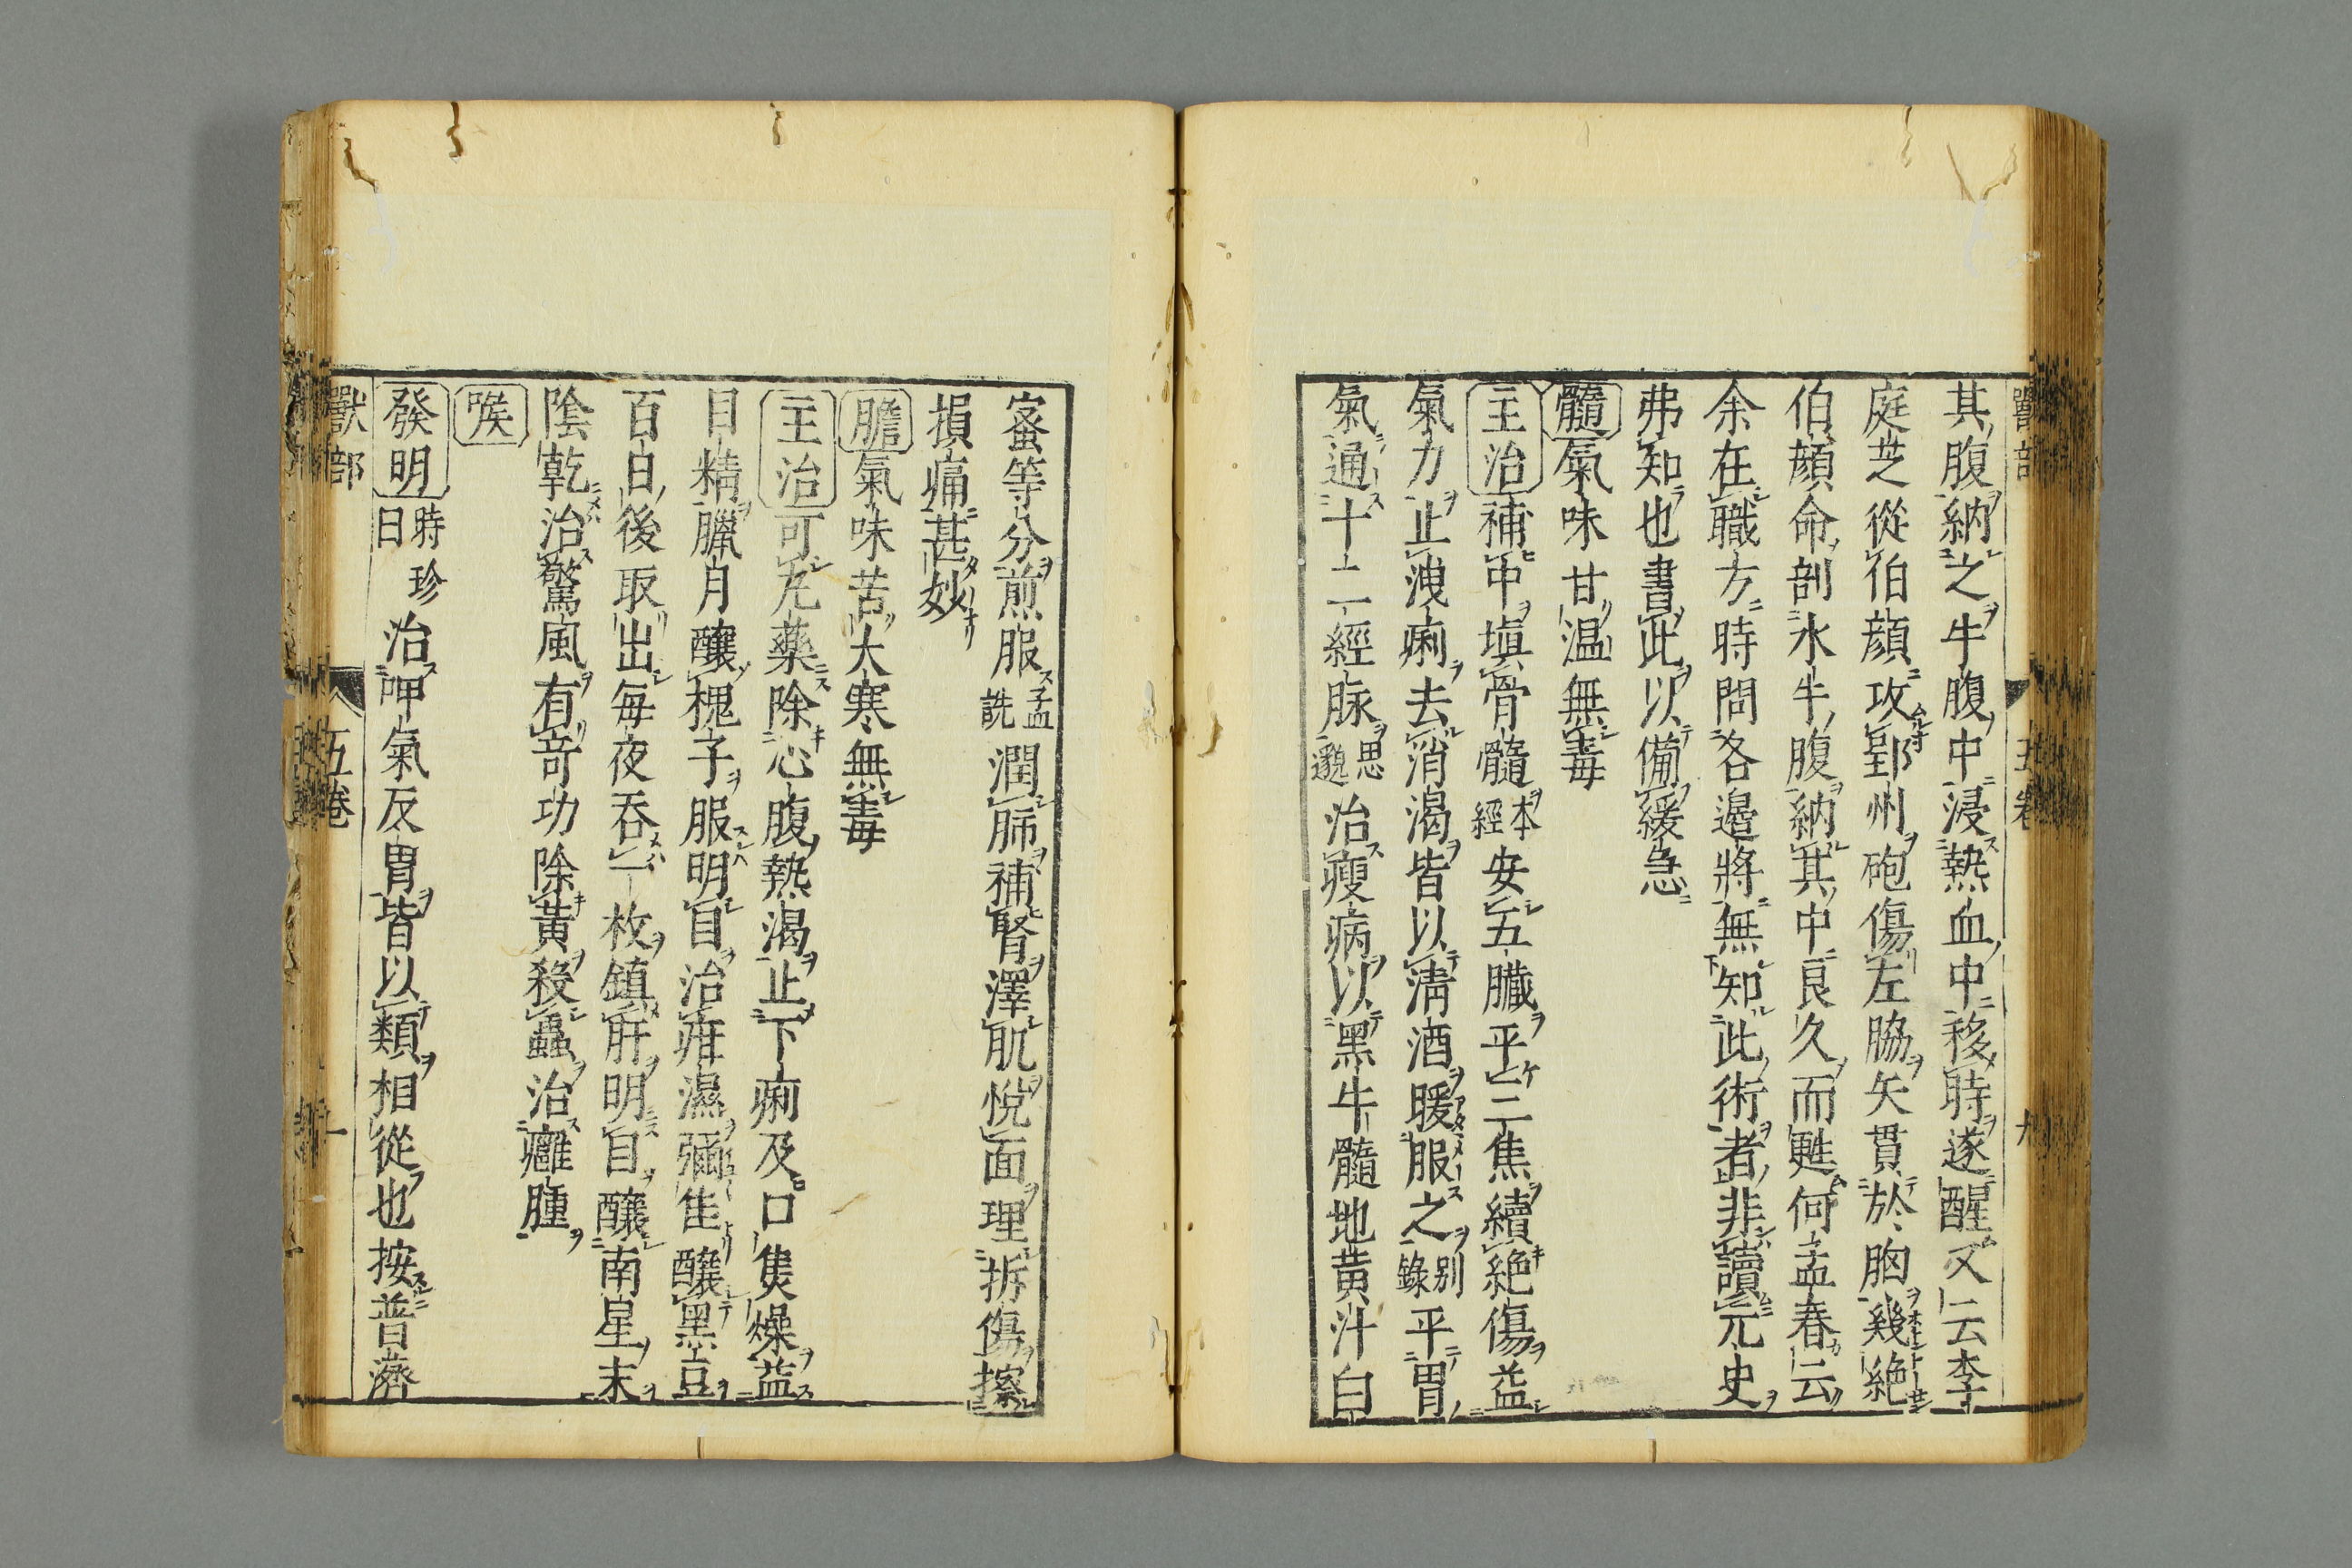 其腹納之牛腹中浸熱血中移時遂醒又云李
庭芝從伯顔攻郢州砲傷左脇矢貫於胸幾絶
伯顔命剖水牛腹納其中良久而甦何孟春云
余在職方時問各邉將無知此術者非讀元史
弗知也書此以備緩急
髓氣味甘温無毒
主治補中塡骨髓本經安五臟平三焦續絶傷益
氣力止洩痢去消渴皆以淸酒暖服之別錄平胃
氣通十二經脉思邈治瘦病以黑牛髓地黄汁白
蜜等分煎服孟詵潤肺補腎澤肌悅面理折傷擦
損痛甚妙
膽氣味苦大寒無毒
主治可丸藥除心腹熱渴止下痢及口焦燥益
目精臘月釀槐子服明目治疳濕彌佳釀黑豆
百日後取出每夜呑一枚鎭肝明目釀南星末
陰乾治驚風有奇功除黄殺蟲治癰腫
喉
發明時珍曰治呷氣反胃皆以類相從也按普濟
獸部 五卷